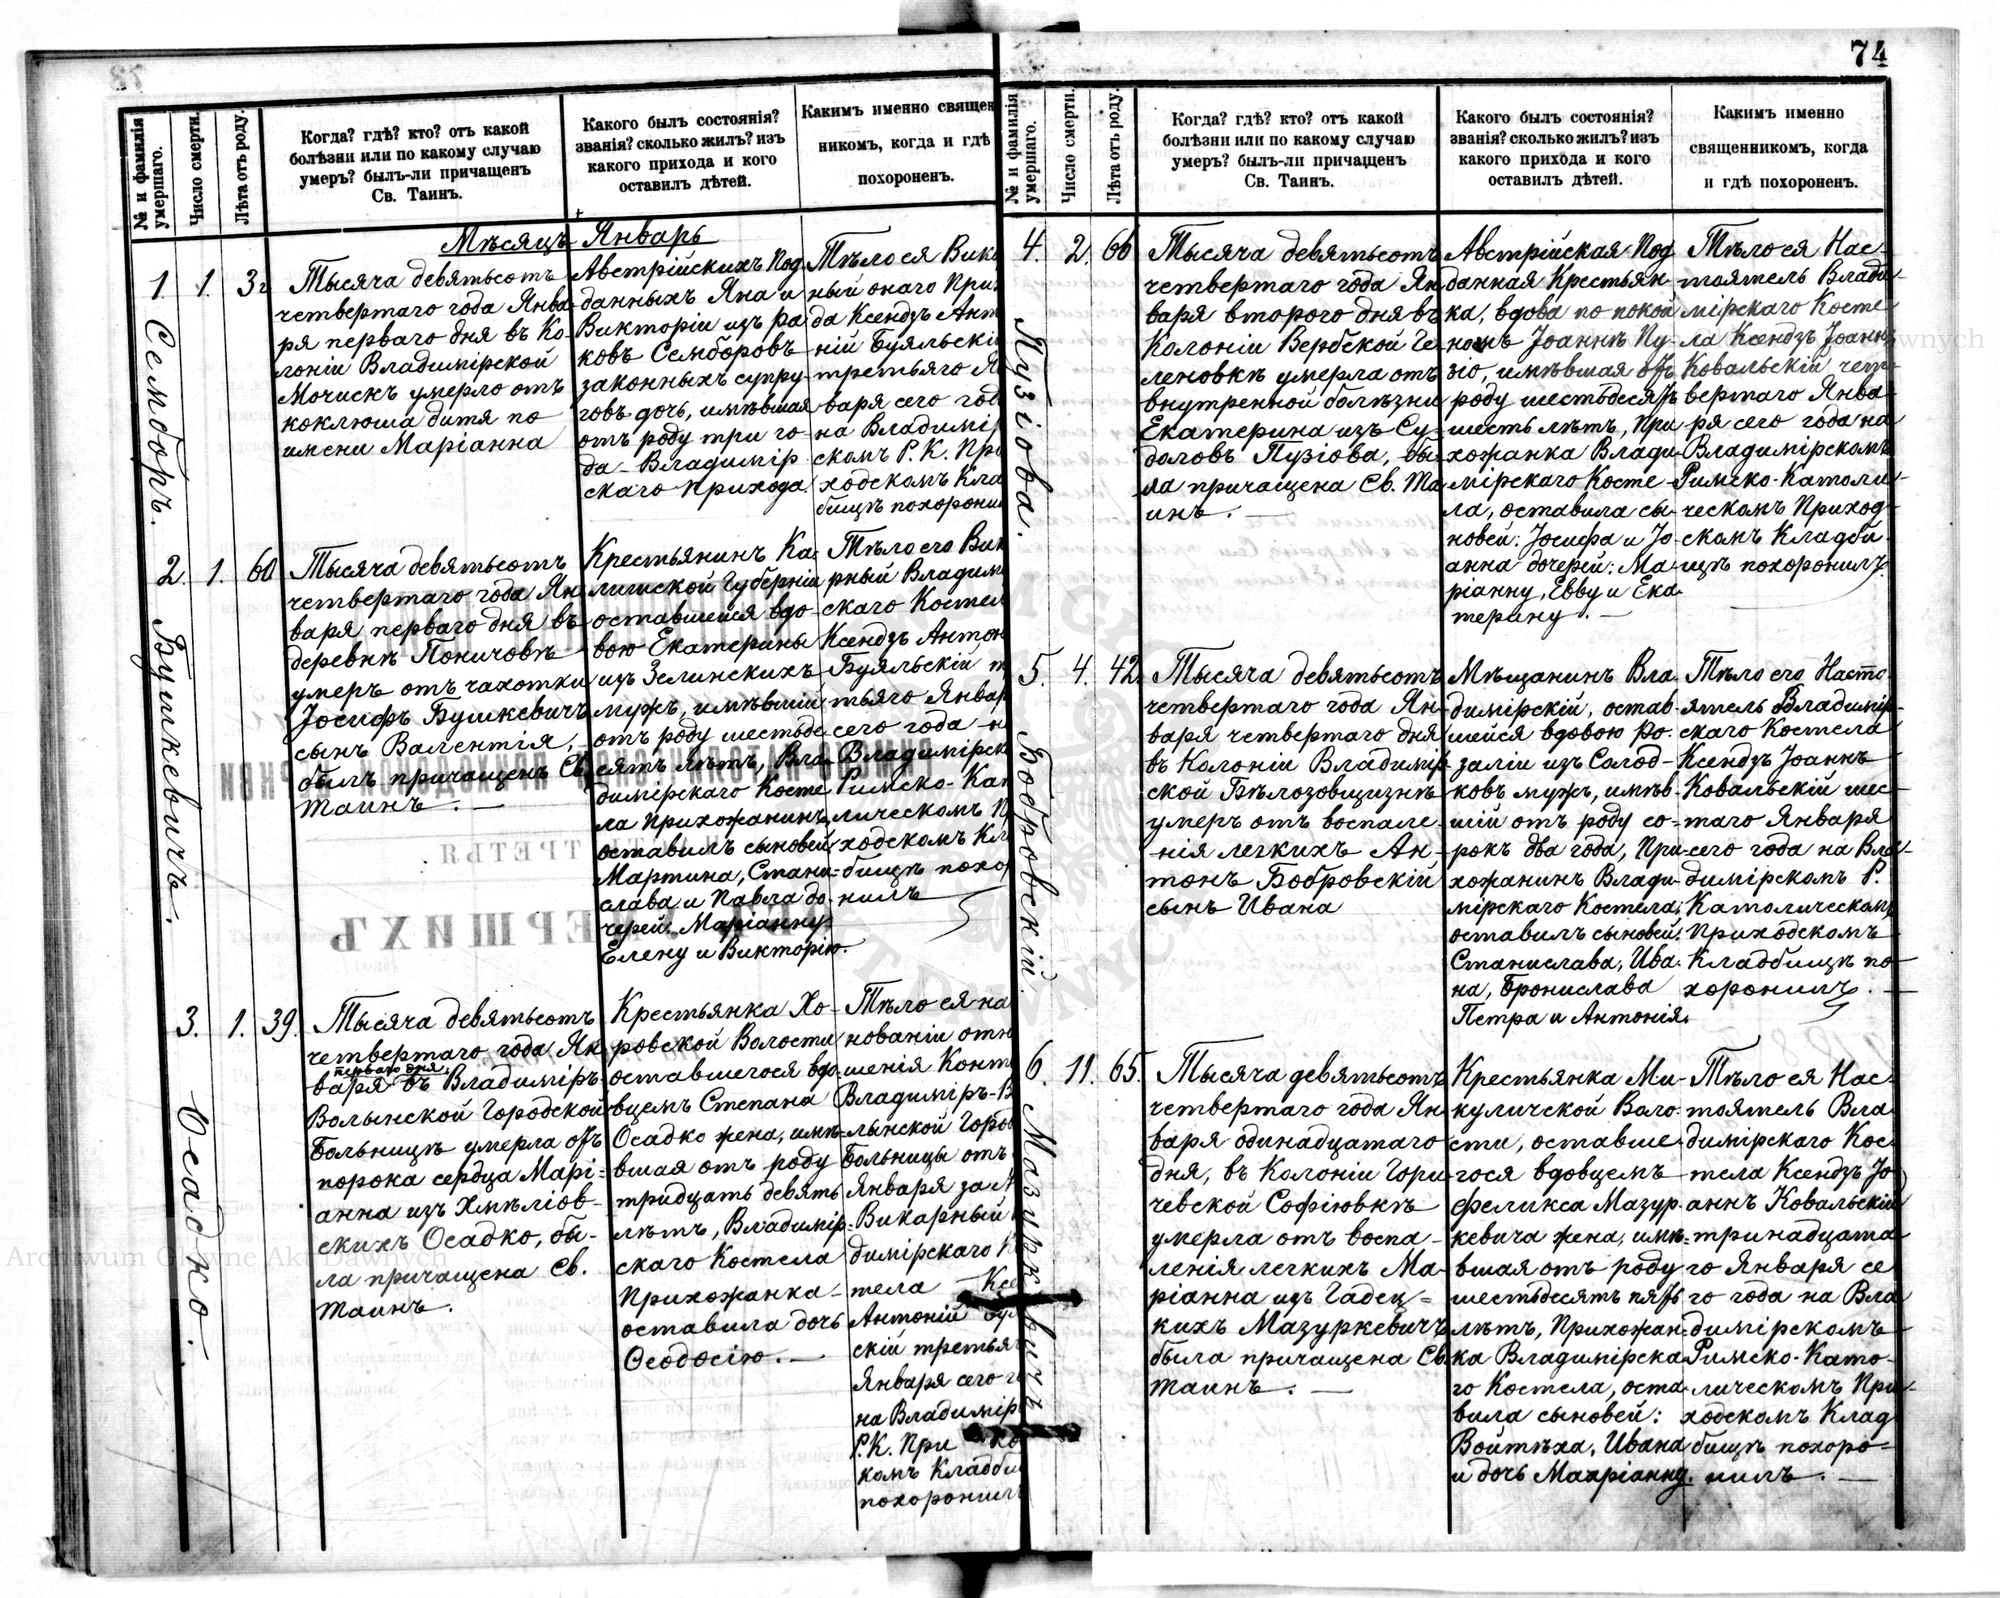 74
№ и фамилія умершаго.
Число смерти.
Лѣта отъ роду.
Когда? гдѣ? кто? отъ какой
болѣзни или по какому случаю
умеръ? былъ-ли причащенъ
Св. Таинъ.
Какого былъ состоянія?
званія? сколько жилъ? изъ
какого прихода и кого
оставилъ дѣтей.
Какимъ именно священ
никомъ, когда и гдѣ
похороненъ.
Мѣсяцъ Январь
1
Семборъ.
1.
3г
Тысяча девятьсотъ
четвертаго года Янва
ря перваго дня въ Ко-
лоніи Владимірской
Мочискъ умерло отъ
коклюша дитя по
имени Маріанна
Австрійскихъ Под
данныхъ Яна и
Викторіи изъ Ра
ковъ Семборовъ
законныхъ супру-
говъ дочь, имѣвшая
отъ роду три го-
да Владимір
скаго прихода.
Тѣло ея Вика
ный онаго При
да Ксендзъ Анто
ній Буяльскі
третьяго Ян
варя сего год
на Владимір
скомъ Р. К. При
ходскомъ Кла
бищѣ похоронил
2.
Бушкевичъ.
1.
60
Тысяча девятьсотъ
четвертаго года Ян
варя перваго дня въ
деревнѣ Поничовѣ
умеръ отъ чахотки
Іосифъ Бушкевичъ
сынъ Валентія,
былъ причащенъ Св.
Таинъ. —
Крестьянинъ Ка-
лишской Губерніи
оставшейся вдо-
вою Екатерины
изъ Зелинскихъ
мужъ, имѣвшій
отъ роду шестьде
сятъ лѣтъ, Вла-
димірскаго Косте
ла Прихожанинъ,
оставилъ сыновей
Мартина, Стани-
слава и Павла до-
черей: Маріанну
Елену и Викторію.
Тѣло его Вик
рный Владим
скаго Костел
Ксендзъ Антон
Буяльскій т
тьяго Январ
сего года н
Владимірск
Римско-Кат
лическомъ П
ходскомъ Кл
бищѣ похор
нилъ
3.
Осадко.
1.
39.
Тысяча девятьсотъ
четвертаго года Ян
перваго дня,
варя въ Владиміръ-
Волынской Городской
Больницѣ умерла отъ
порока сердца Марі-
анна изъ Хмѣліов-
скихъ Осадко, бы-
ла причащена Св.
Таинъ.
Крестьянка Хо-
ровской Волости
оставшегося вдо
вцемъ Степана
Осадко жена, имѣ-
вшая отъ роду
тридцать девять
лѣтъ, Владимір-
скаго Костела
Прихожанка-
оставила дочь
Ѳеодосію. —
Тѣло ея на
нованіи отн
шенія Конт
Владиміръ-В
лынской Горо
Больницы отъ
Января за №
Викарный
димірскаго К
тела Ксе
Антоній Буя
скій третья
Января сего г
на Владимір
Р. К. При ко
комъ Кладби
похоронилъ
№ и фамилія умершаго.
Число смерти.
Лѣта отъ роду.
Когда? гдѣ? кто? отъ какой
болѣзни или по какому случаю
умеръ? былъ-ли причащенъ
Св. Таинъ.
Какого былъ состоянія?
званія? сколько жилъ? изъ
какого прихода и кого
оставилъ дѣтей.
Какимъ именно
священникомъ, когда
и гдѣ похороненъ.
4.
Пузіова.
2.
66
Тысяча девятьсотъ
четвертаго года Ян
варя второго дня въ
Колоніи Вербской Ге
леновкѣ умерла отъ
внутренной болѣзни
Екатерина изъ Су-
доловъ Пузіова, бы-
ла причащена Св. Та
инъ. —
Австрійская Под
данная Крестьян
ка, вдова по покой
номъ Іоаннѣ Пу-
зіо, имѣвшая отъ
роду шестьдесятъ
шесть лѣтъ, При
хожанка Влади-
мірскаго Косте-
ла, оставила сы-
новей: Іосифа и Іо
анна дочерей: Ма-
ріанну, Евву и Ека
терину. —
Тѣло ея Нас-
тоятель Влади-
мірскаго Косте
ла Ксендзъ Іоаннъ
Ковальскій чет-
вертаго Янва-
ря сего года на
Владимірскомъ
Римско-Католи-
ческомъ Приход-
скомъ Кладби
щѣ похоронилъ.
5.
Бобровскій
4.
42.
Тысяча девятьсотъ
четвертаго года Ян-
варя четвертаго дня
въ Колоніи Владимір-
ской Бѣлозовщизнѣ
умеръ отъ воспале-
нія легкихъ Ан-
тонъ Бобровскій
сынъ Ивана
Мѣщанинъ Вла-
димірскій, остав-
шейся вдовою Ро-
заліи изъ Солод-
ковъ мужъ, имѣв-
шій отъ роду со-
рокъ два года, При-
хожанинъ Влади-
мірскаго Костела,
оставилъ сыновей:
Станислава, Ива-
на, Бронислава
Петра и Антонія.
Тѣло его Насто-
ятель Владимір-
скаго Костела
Ксендзъ Іоаннъ
Ковальскій шес-
таго Января
сего года на Вла-
димірскомъ Р.
Католическомъ
Приходскомъ
Кладбищѣ по-
хоронилъ. —
6.
Мазуркевичъ
11.
65.
Тысяча девятьсотъ
четвертаго года Ян
варя одинадцатаго
дня, въ Колоніи Гори
чевской Софіювкѣ
умерла отъ воспа-
ленія легкихъ Ма-
ріанна изъ Гадец-
кихъ Мазуркевичъ
была причащена Св.
Таинъ. —
Крестьянка Ми-
куличской Воло-
сти, оставше-
гося вдовцемъ
Феликса Мазур-
кевича жена, имѣ-
вшая отъ роду
шестьдесятъ пять
лѣтъ, Прихожан-
ка Владимірска-
го Костела, оста-
вила сыновей:
Войтѣха, Ивана
и дочь Маріанну.
Тѣло ея Нас-
тоятель Вла
димірскаго Кос
тела Ксендзъ Іо
аннъ Ковальскій
тринадцата
го Января се
го года на Вла
димірскомъ
Римско-Като-
лическомъ При-
ходскомъ Клад
бищѣ похоро-
нилъ. —
Archiwum Główne Akt Dawnych